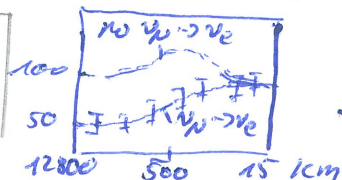 no νμ → νe
100
50
νμ → νe
12800 500 15 km